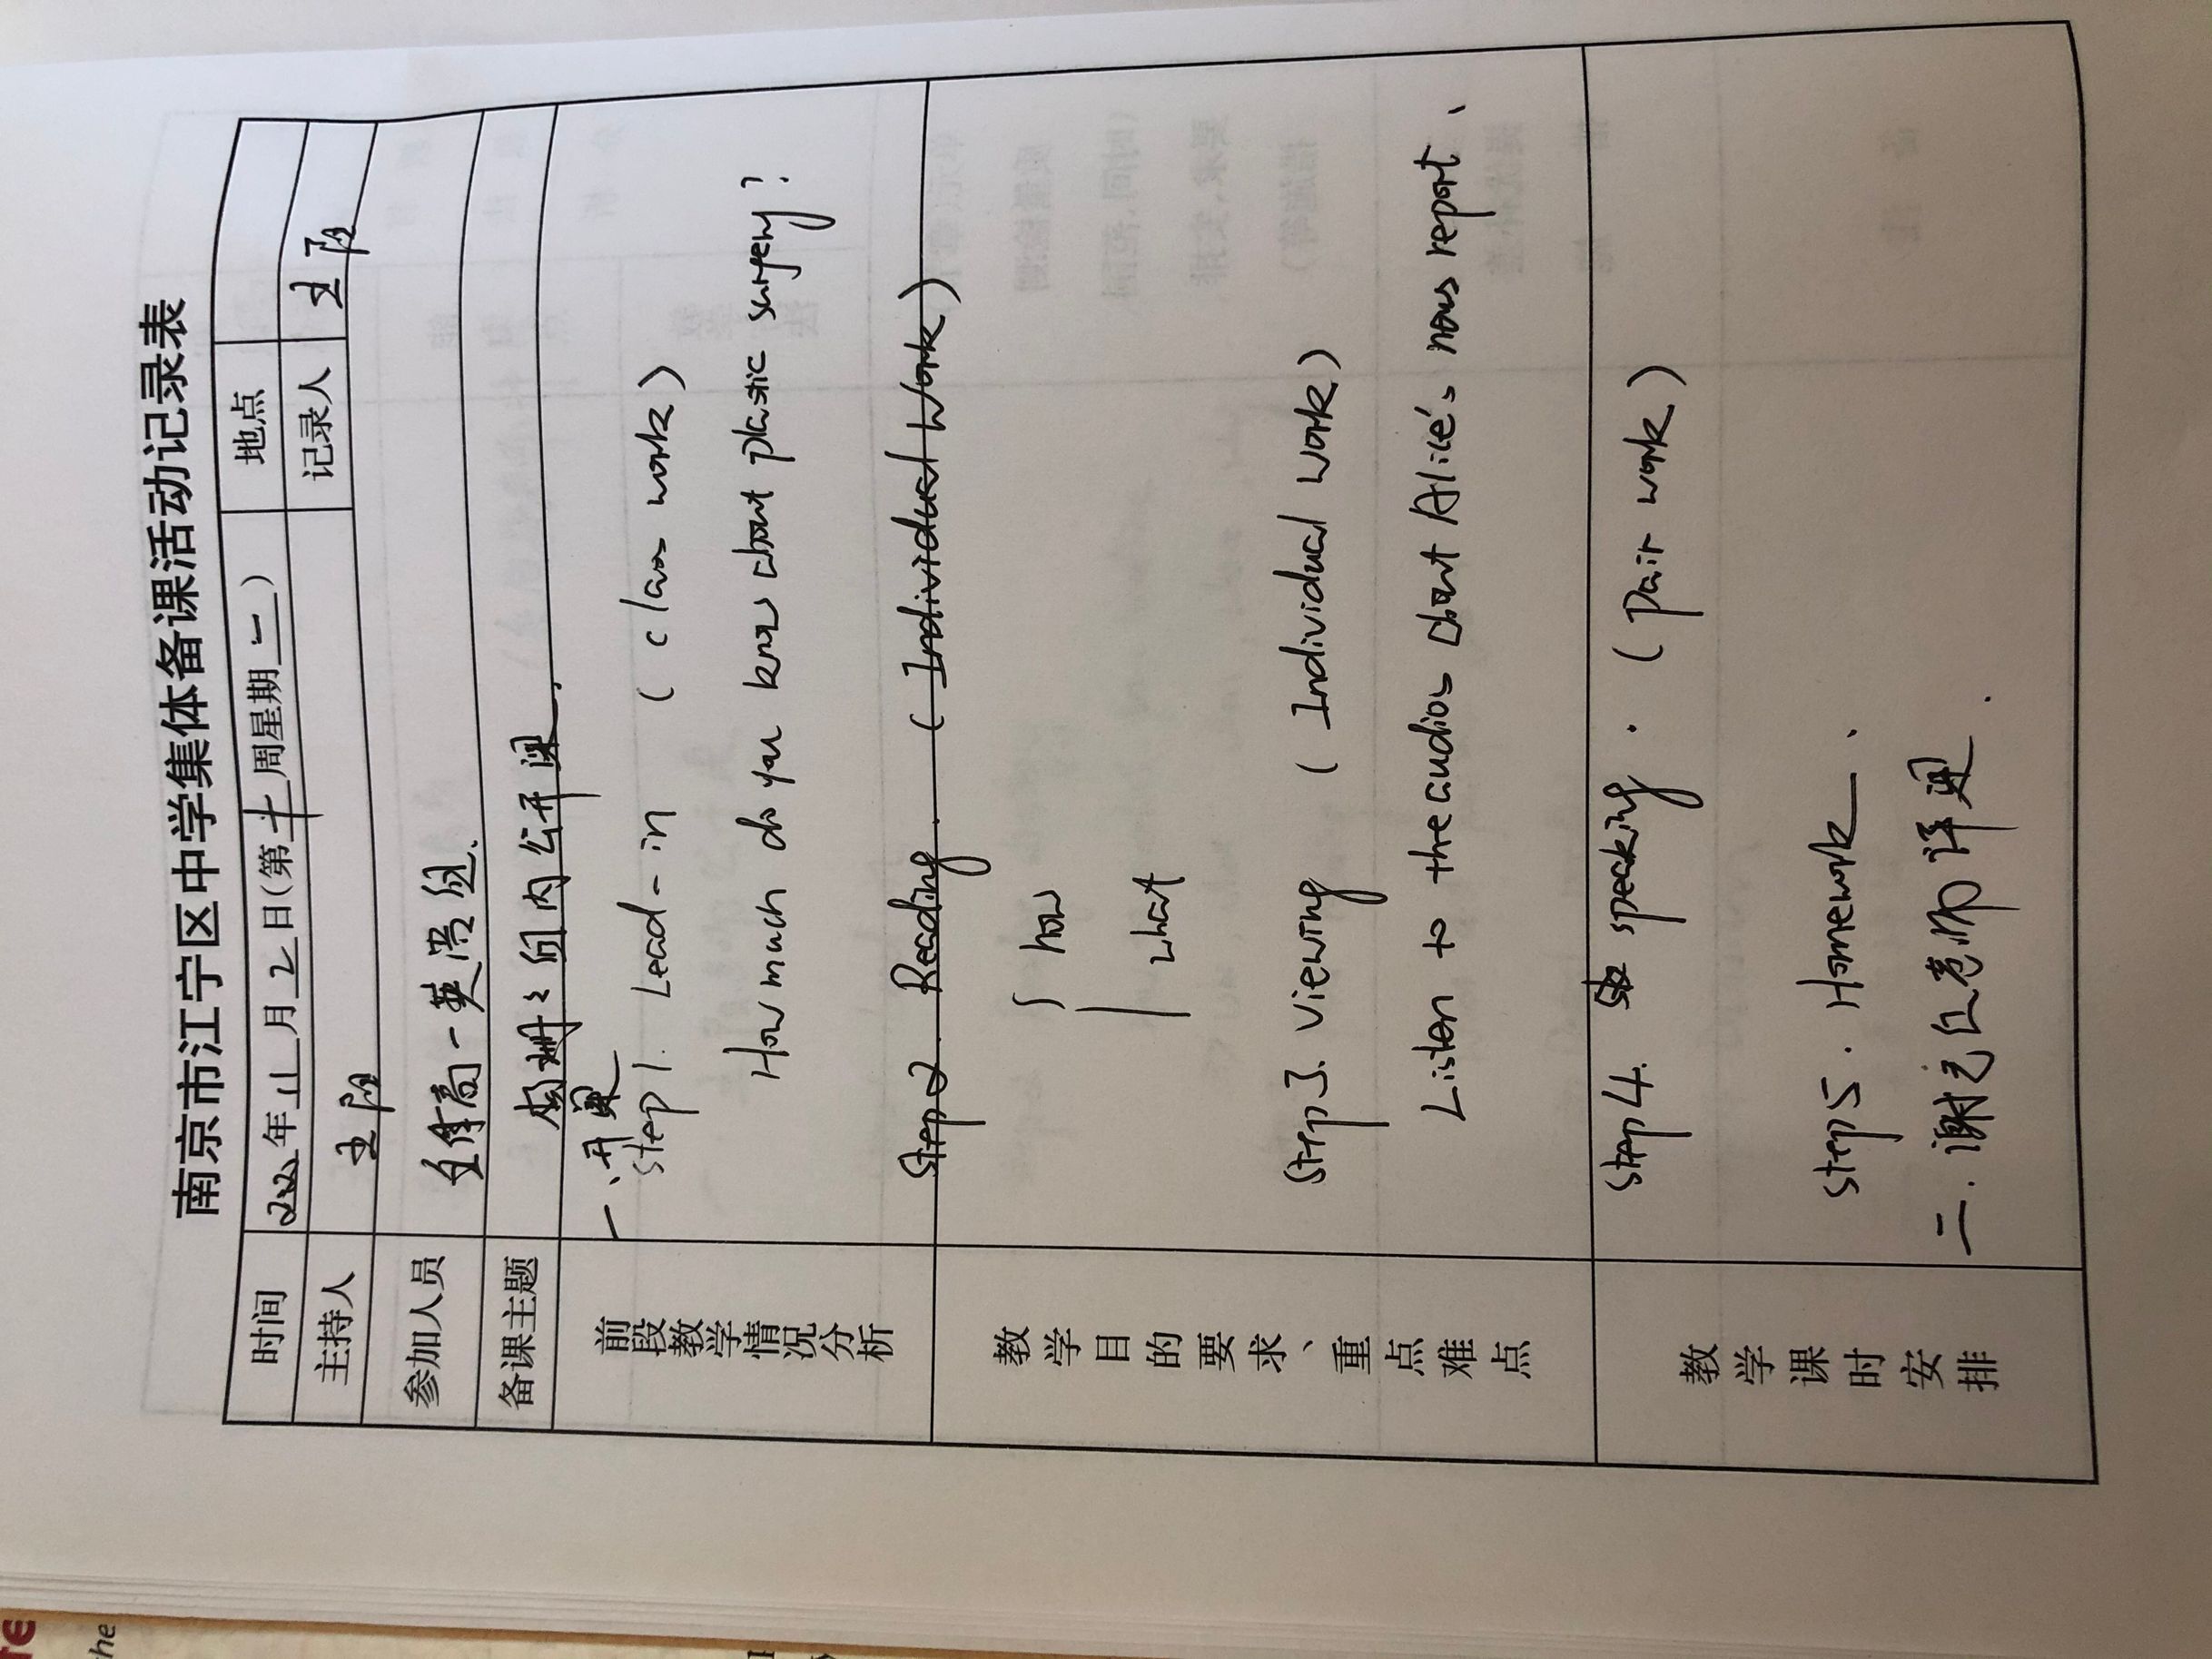 南京市江宁区中学集体备课活动记录表
时间 2020年11月2日(第十周星期一) 地点
主持人 王阳 记录人 王阳
参加人员 全体高一英语组.
备课主题 杨珊之组内公开课.
前段教学情况分析
一.开课
Step1. Lead-in (class work)
How much do you know about plastic surgery?
Step2. Reading. (Individual work)
教学目的要求、重点难点
how
what
Step3. Viewing (Individual work)
Listen to the audios about Alice's news report.
教学课时安排
Step4. speaking. (pair work)
Step5. Homework.
二.谢 老师评课.
TE
he